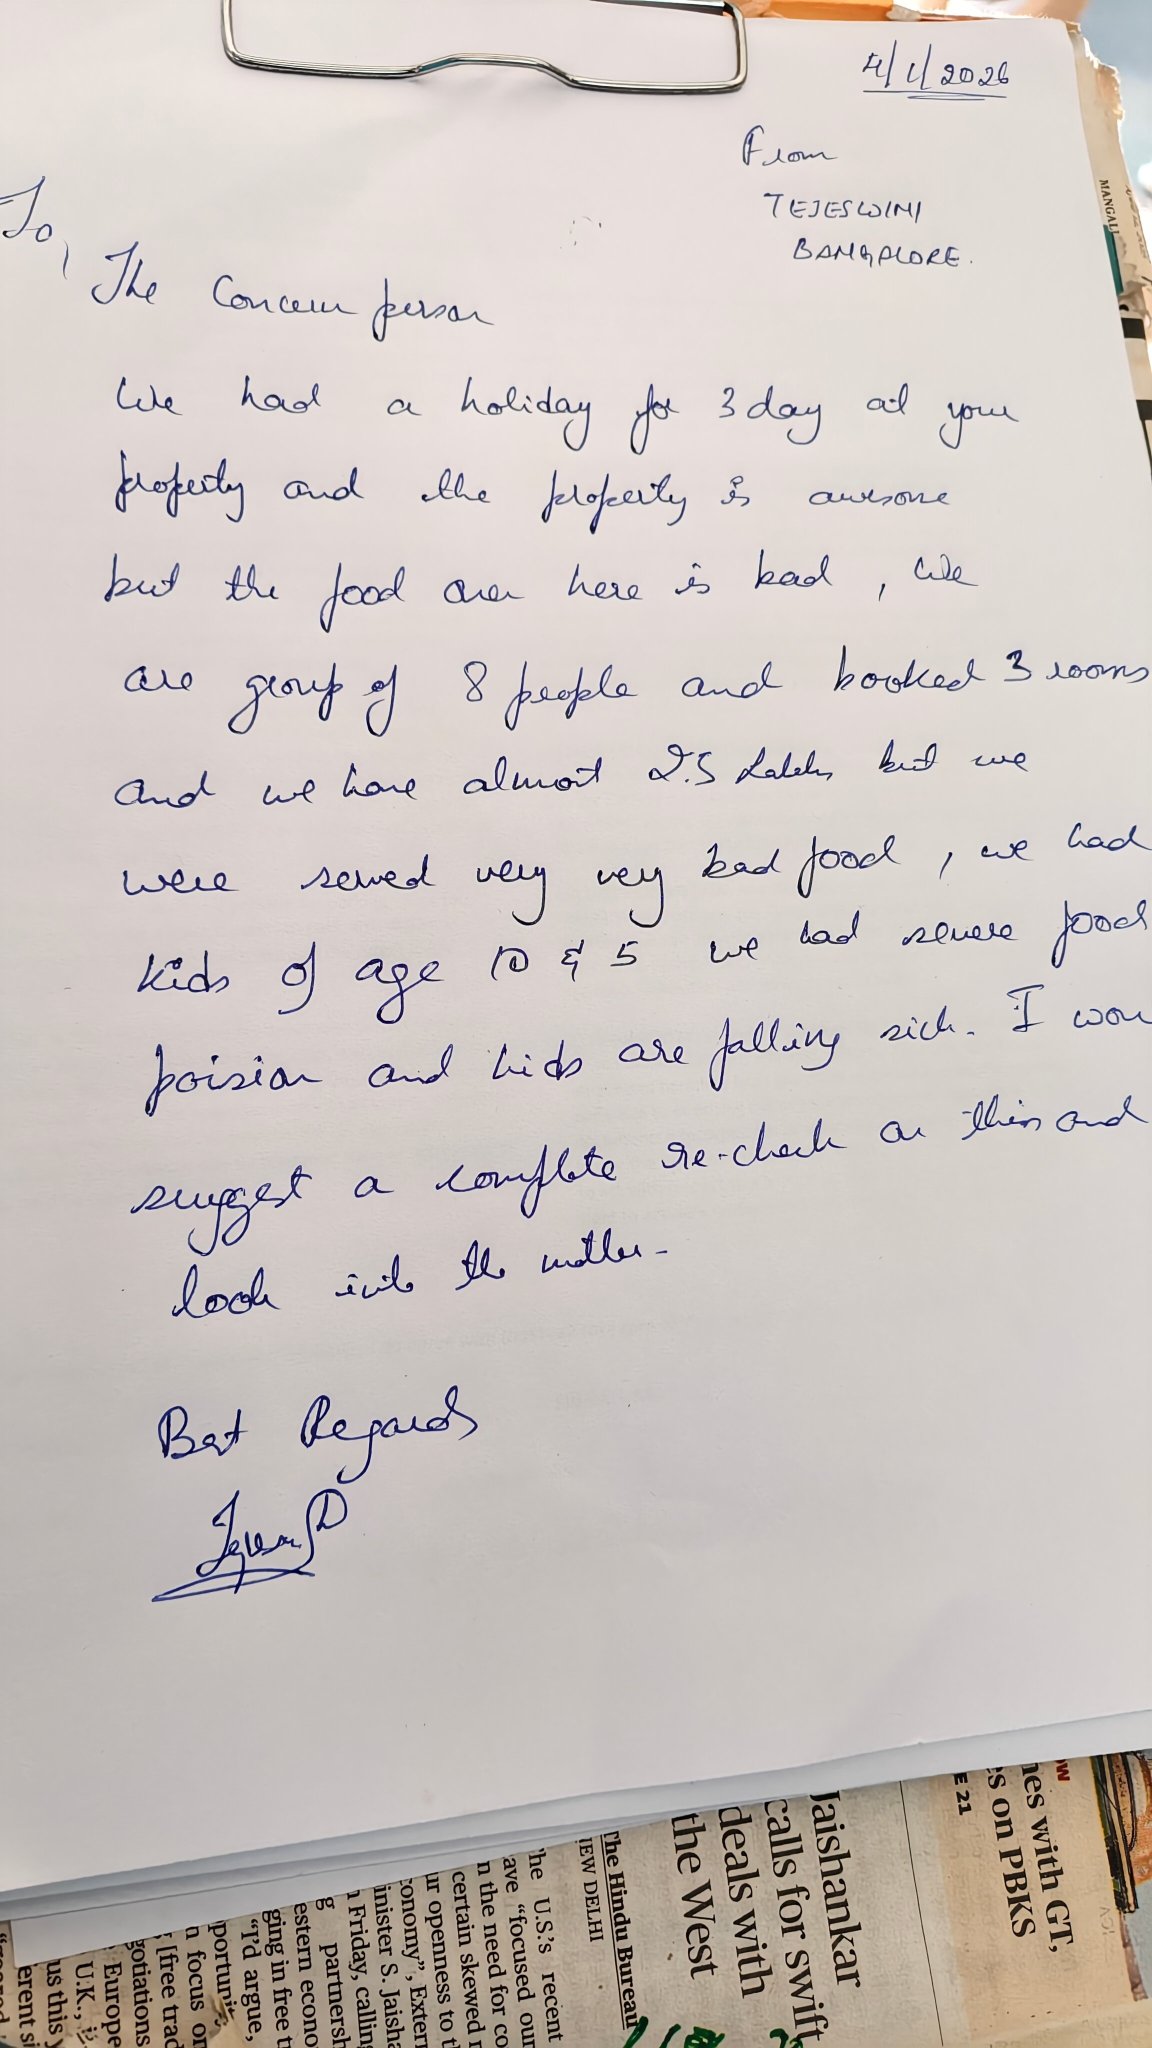 4/1/2026
From
TEJESWINI
BANGALORE.
To,
The Concern person
We had a holiday for 3 day at your
property and the property is awesome
but the food over here is bad, We
are group of 8 people and booked 3 rooms
and we have almost 2.5 Lakhs but we
were served very very bad food, we had
kids of age 10 & 5 we had severe food
poision and kids are falling sick. I wou
suggest a complete re-check on this and
look into the matter.
Best Regards
MANGALI
Jaishankar
calls for swift
deals with
the West
The Hindu Bureau
NEW DELHI
he U.S.'s recent
ave "focused our
n the need for co
certain skewed r
ur openness to t
conomy", Extern
inister S. Jaisha
n Friday, calling
g partnersh
estern econo
ging in free t
"I'd argue,
pportunit
n focus on
[free trad
gotiations
Europe
U.K., is
us this y
erent si
nes with GT,
es on PBKS
OW
E 21